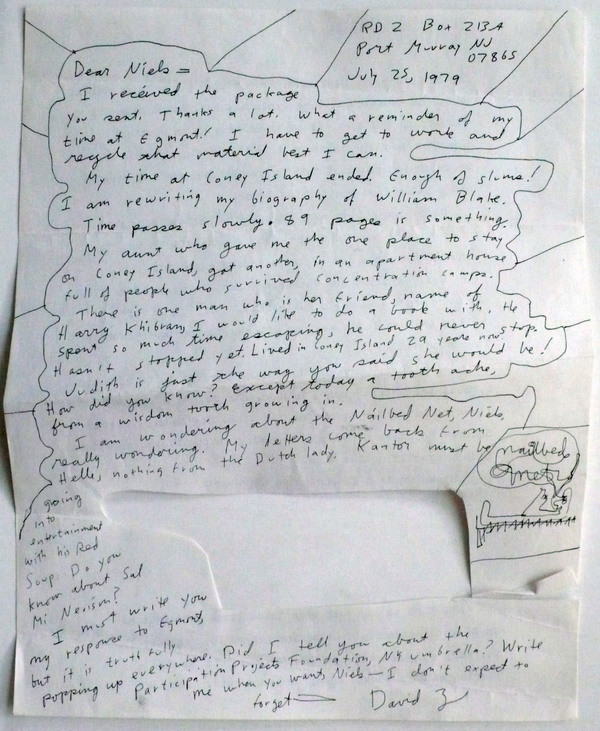 RD 2 Box 213A
Port Murray NJ
07865
July 25, 1979
Dear Niels =
I received the package
you sent. Thanks a lot. What a reminder of my
time at Egmont! I have to get to work and
recycle that material best I can.
My time at Coney Island ended. Enough of slums!
I am rewriting my biography of William Blake.
Time passes slowly. 89 pages is something.
My aunt who gave me the one place to stay
on Coney Island, got another, in an apartment house
full of people who survived concentration camps.
There is one man who is her friend, name of
Harry I would like to do a book with. He
spent so much time escaping, he could never stop.
Hasn't stopped yet. Lived in Coney Island 29 years now.
Judith is just the way you said she would be!
How did you know? Except today a tooth ache,
from a wisdom tooth growing in.
I am wondering about the Nailbed Net, Niels,
really wondering. My letters come back from
Helle, nothing from the Dutch lady. Kantor must be
going
into
entertainment
with his Red
Soup. Do you
know about Sal
Mi Nerism?
I must write you
my response to Egmont,
but it is truthfully
popping up everywhere. Did I tell you about the
Participation Projects Foundation, NY umbrella? Write
me when you want, Niels — I don't expect to
forget —
David Z
nailbed
net